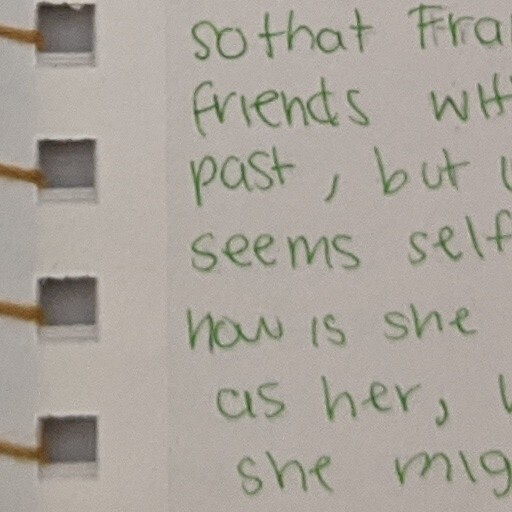 so that Fra
friends wit
past, but
seems self
how is she
as her,
she mig